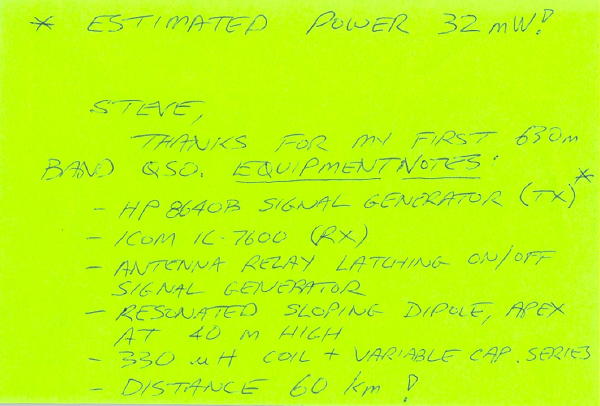 * ESTIMATED POWER 32 mW!
STEVE,
THANKS FOR MY FIRST 630m
BAND QSO. EQUIPMENT NOTES:
- HP 8640B SIGNAL GENERATOR (TX)*
- ICOM IC-7600 (RX)
- ANTENNA RELAY LATCHING ON/OFF
SIGNAL GENERATOR
- RESONATED SLOPING DIPOLE, APEX
AT 40 m HIGH
- 330 uH COIL + VARIABLE CAP. SERIES
- DISTANCE 60 Km!